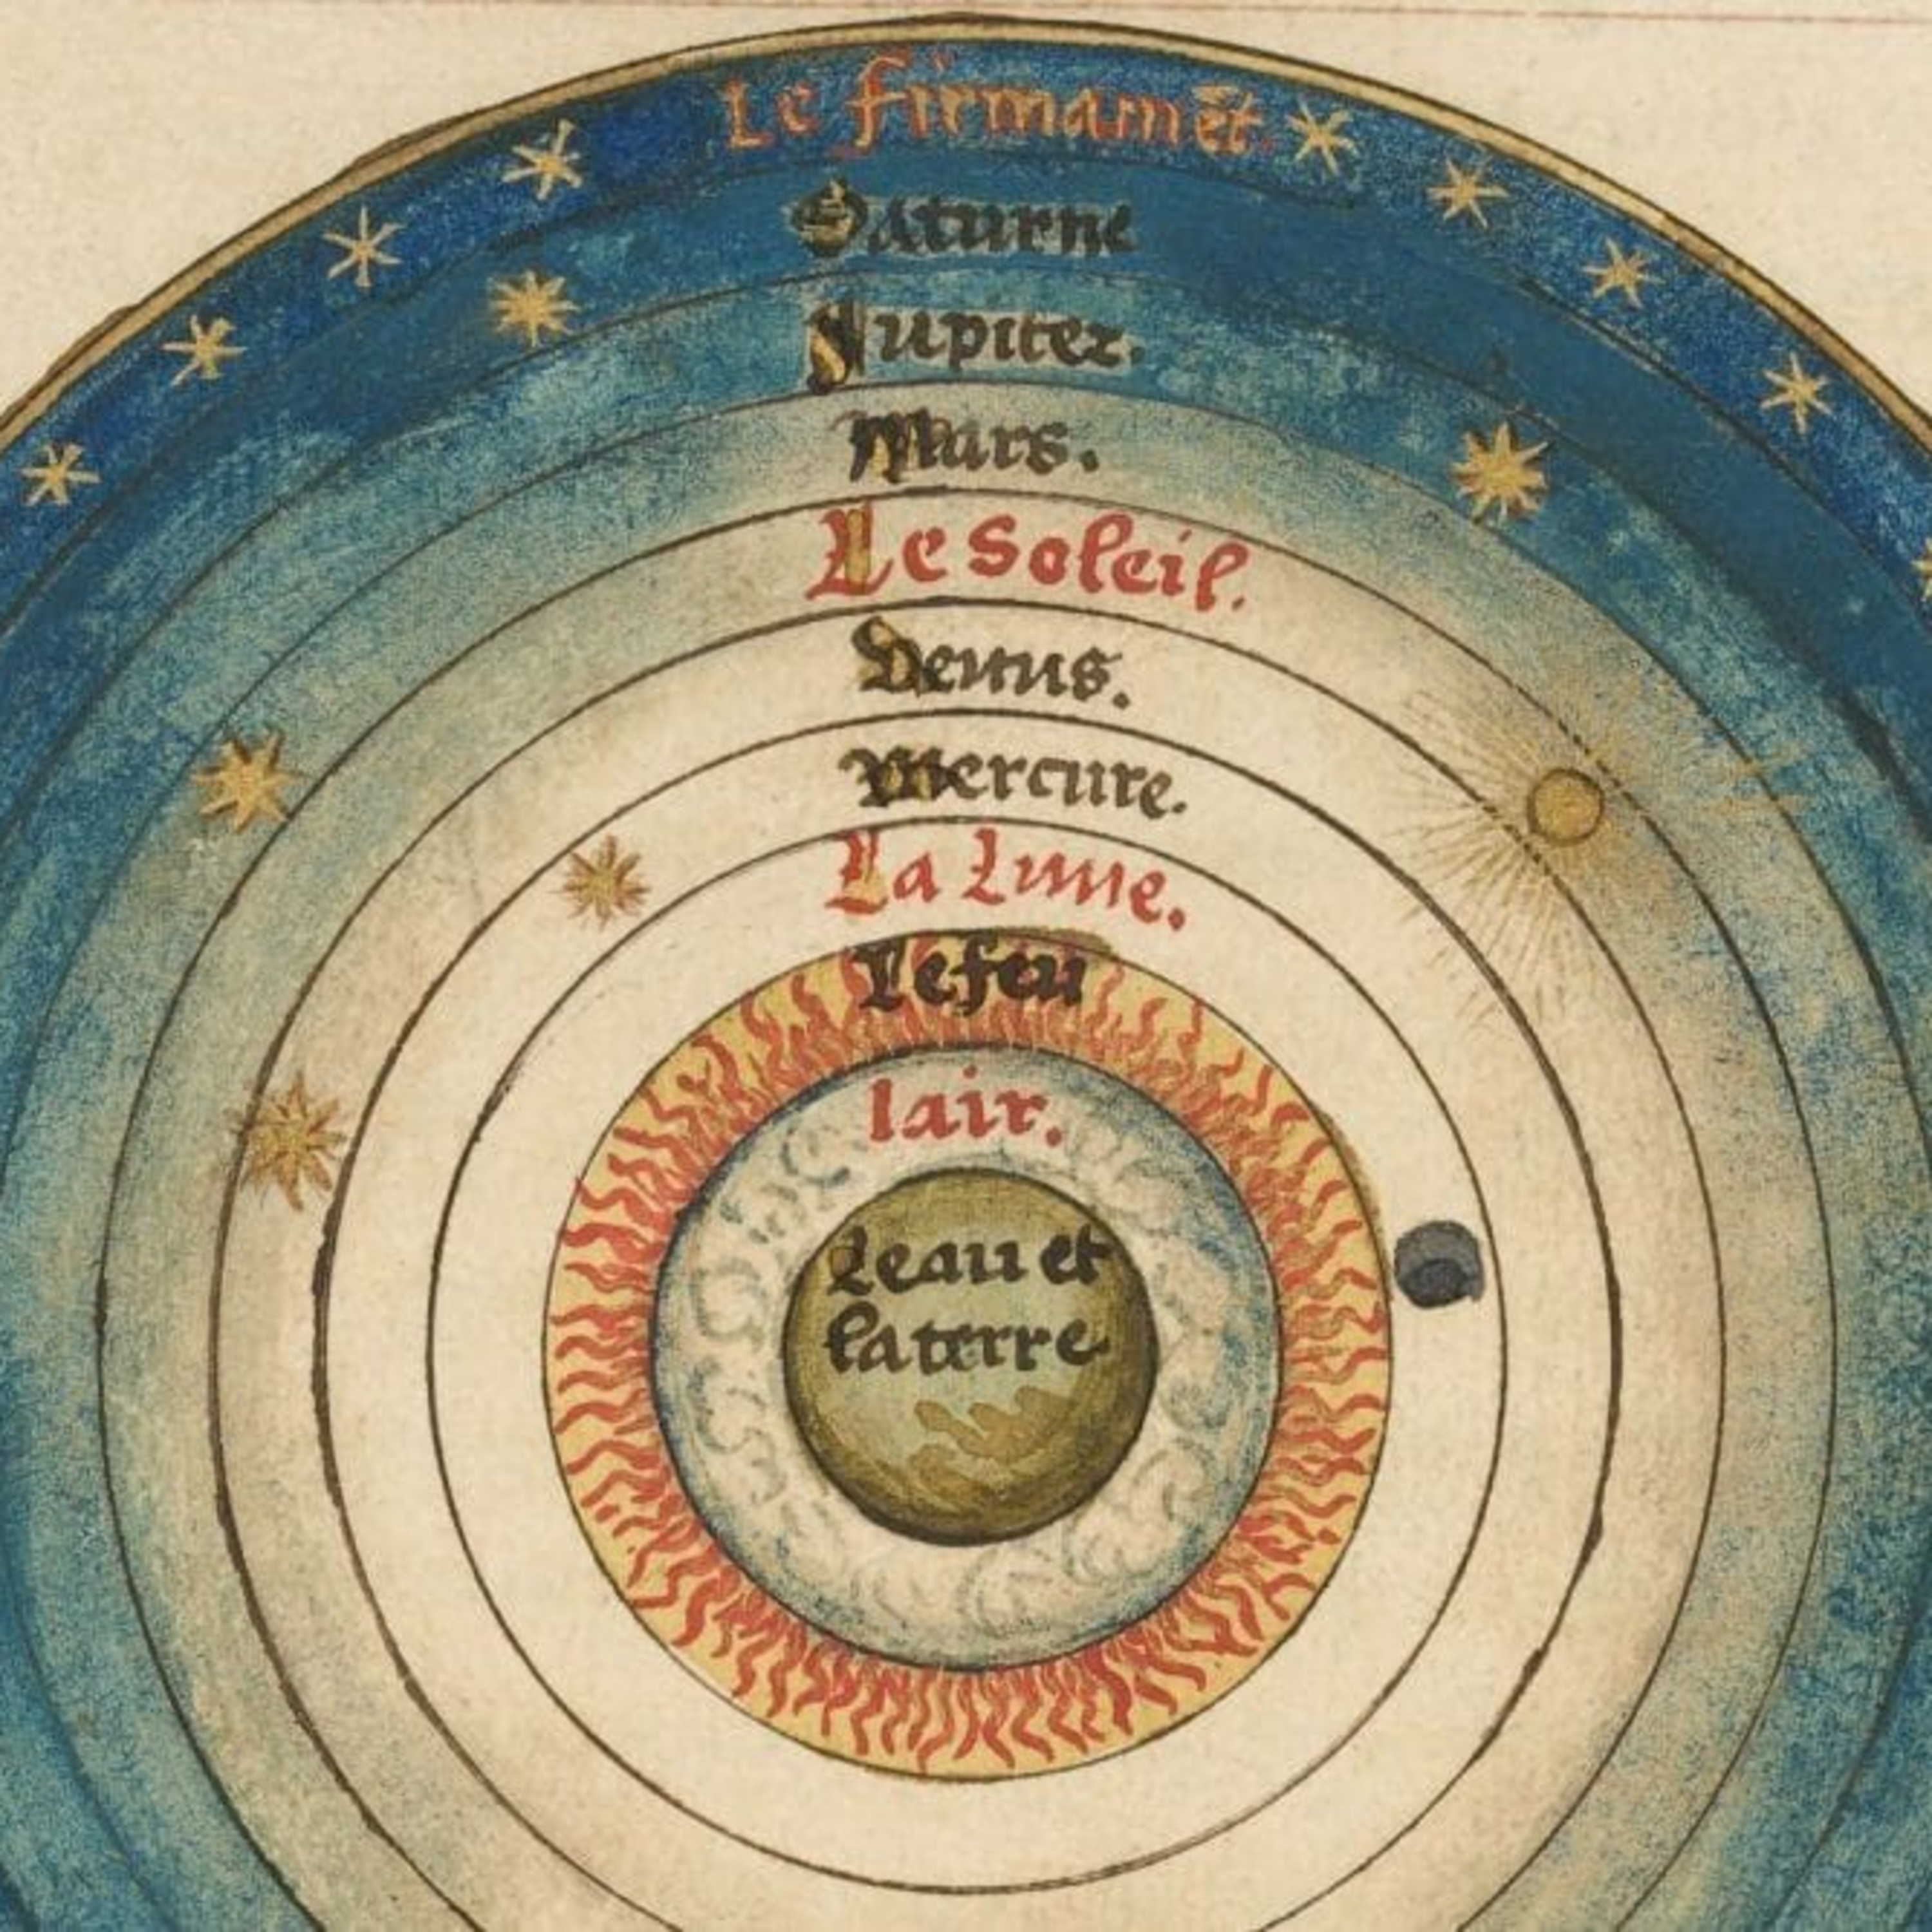 Le firmamēt.
Saturne
Jupiter.
Mars.
Le Soleil.
Venus.
Mercure.
La Lune.
Le feu
lair.
Leau et
la terre